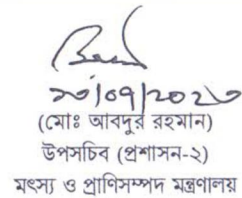 ২০/০৭/২০২৩
(মোঃ আবদুর রহমান)
উপসচিব (প্রশাসন-২)
মৎস্য ও প্রাণিসম্পদ মন্ত্রণালয়